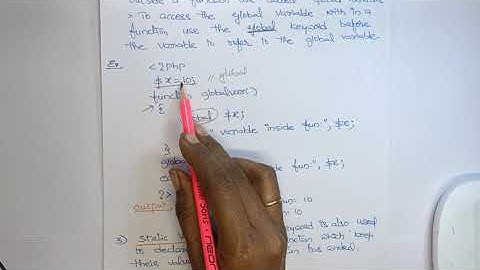 outside a function are called global variables
> To access the global variable with in a
function use the global keyword before
the variable to refer to the global variable.
Ex: <?php
$x=10; // global
function globalvar()
→ {
global $x;
" variable inside fun:", $x;
}
glob
inside fun:", $x;
?>
output: 10
: 10
3) Static keyword is also used
to declare function which keep
their value function has ended.